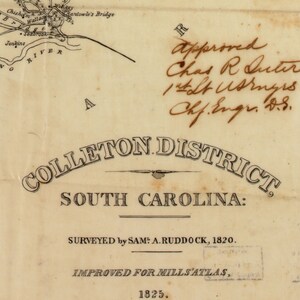 Pantowle's Bridge
Jenkins
RIVER
A
R
Approved
Chas R Suter
1st Lt US Engrs
Chf. Engr. D.S.
COLLETON DISTRICT,
SOUTH CAROLINA:
SURVEYED by SAML. A. RUDDOCK, 1820.
IMPROVED FOR MILLS' ATLAS,
1825.